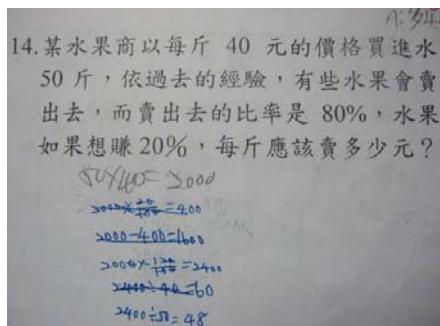 14.某水果商以每斤 40 元的價格買進水
50 斤，依過去的經驗，有些水果會賣
出去，而賣出去的比率是 80%，水果
如果想賺 20%，每斤應該賣多少元？
50×40=2000
2000×20/100=400
2000-400=1600
2000×120/100=2400
2400÷40=60
2400÷50=48